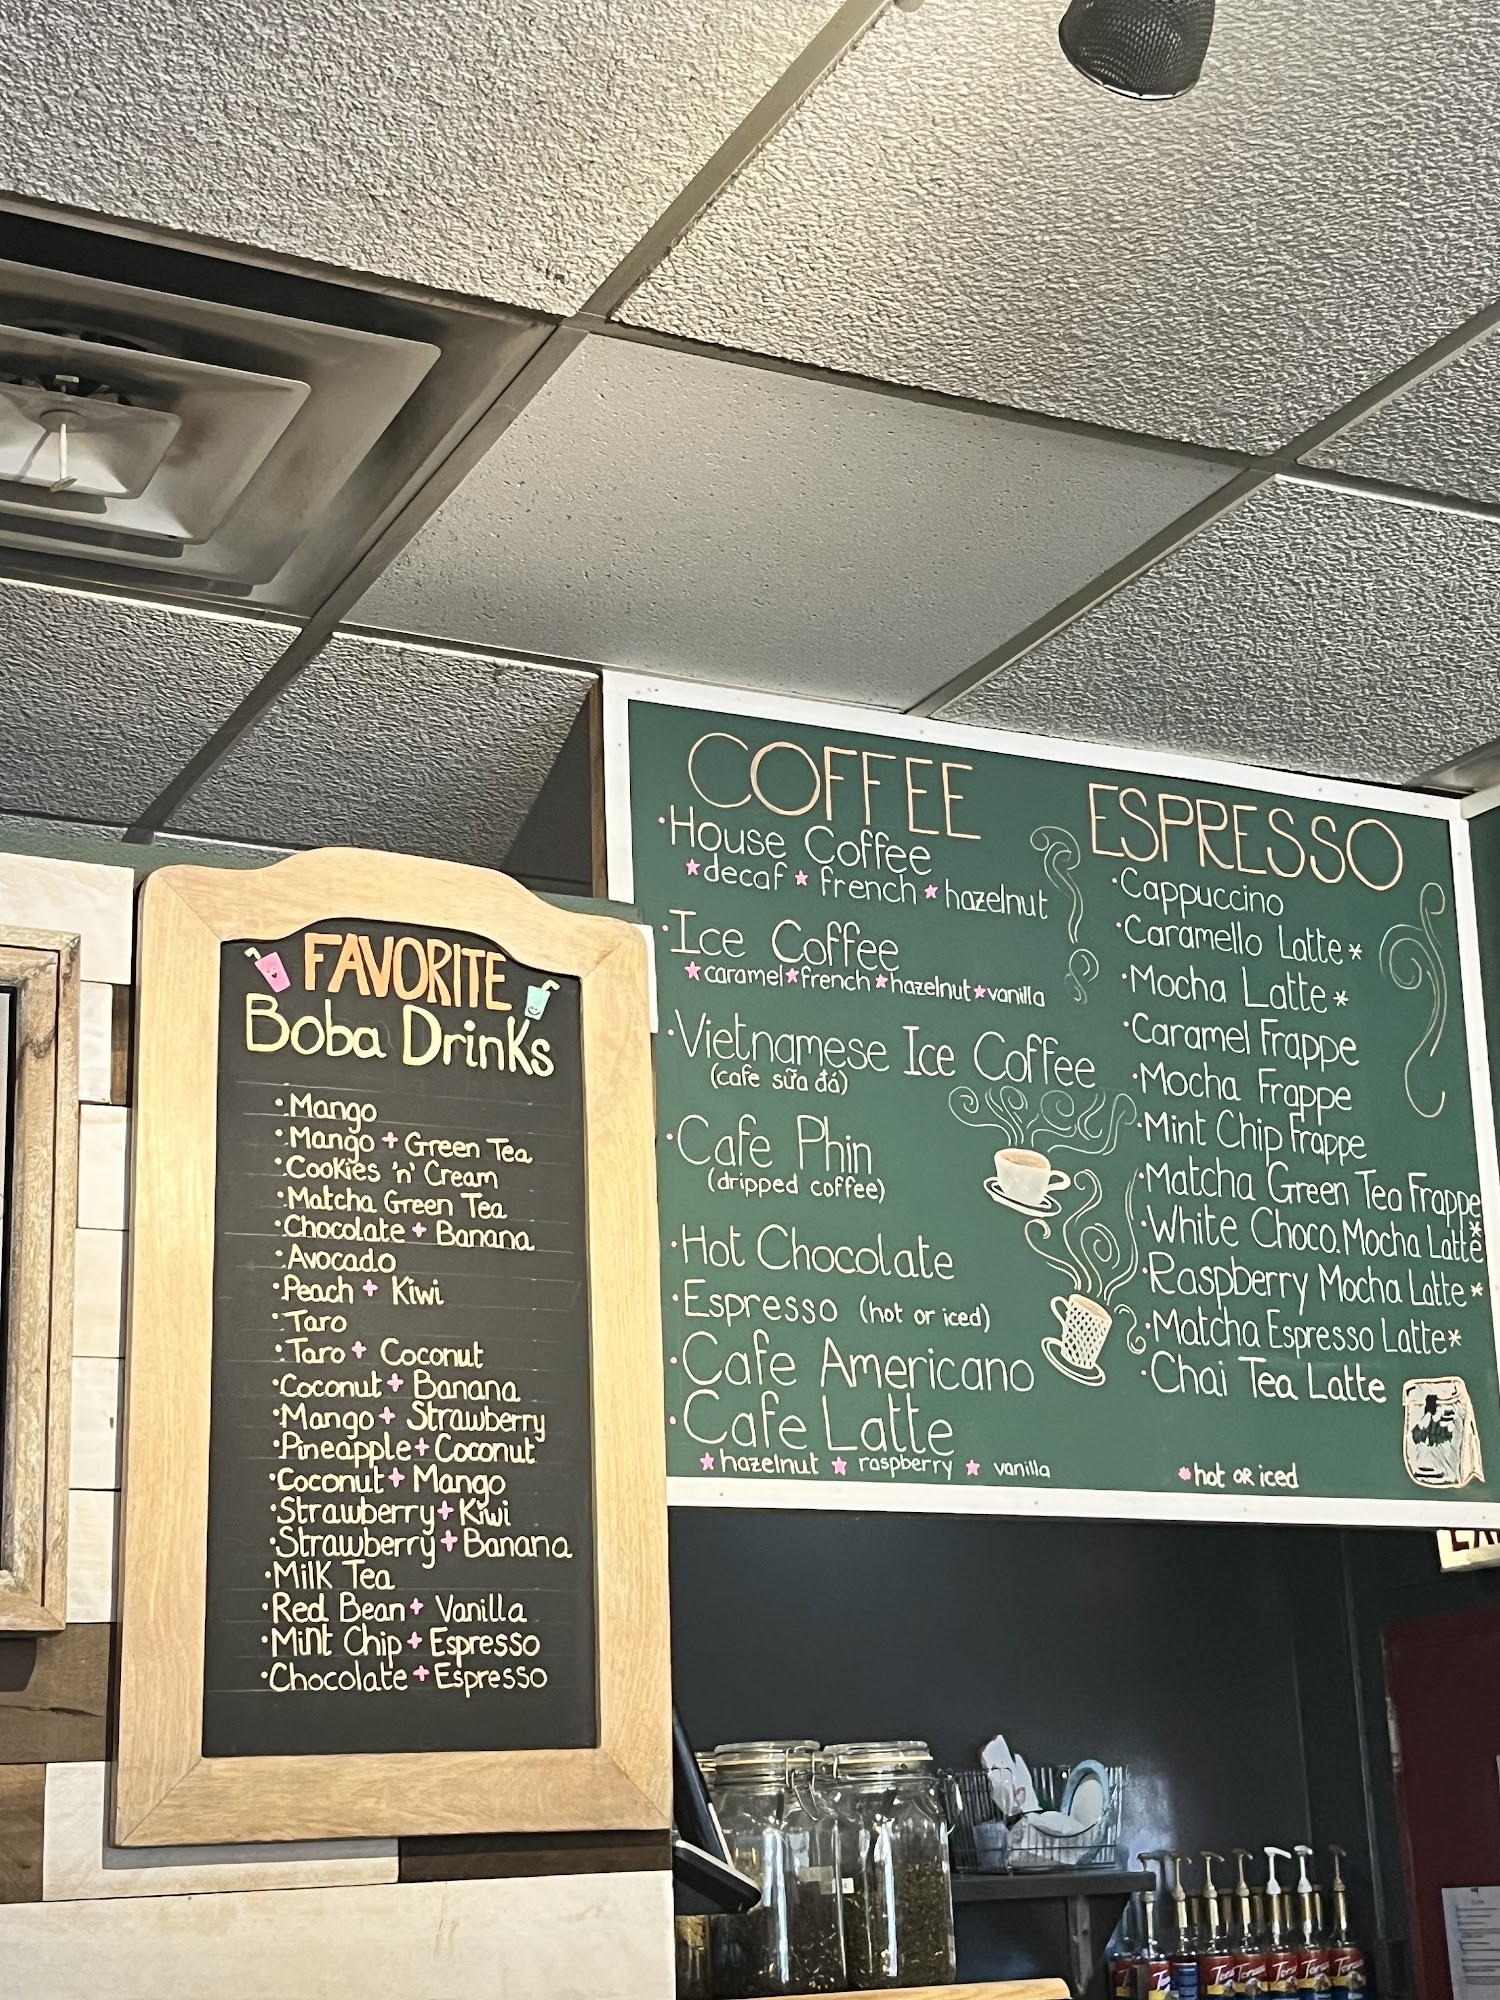 FAVORITE
Boba Drinks
·Mango
·Mango + Green Tea
·Cookies 'n' Cream
·Matcha Green Tea
·Chocolate + Banana
·Avocado
·Peach + Kiwi
·Taro
·Taro + Coconut
·Coconut + Banana
·Mango + Strawberry
·Pineapple + Coconut
·Coconut + Mango
·Strawberry + Kiwi
·Strawberry + Banana
·Milk Tea
·Red Bean + Vanilla
·Mint Chip + Espresso
·Chocolate + Espresso
COFFEE
·House Coffee
★decaf ★ french ★ hazelnut
·Ice Coffee
★caramel★french★hazelnut★vanilla
·Vietnamese Ice Coffee
(cafe sữa đá)
·Cafe Phin
(dripped coffee)
·Hot Chocolate
·Espresso (hot or iced)
·Cafe Americano
·Cafe Latte
★hazelnut ★ raspberry ★ vanilla
ESPRESSO
·Cappuccino
·Caramello Latte*
·Mocha Latte*
·Caramel Frappe
·Mocha Frappe
·Mint Chip Frappe
·Matcha Green Tea Frappe
·White Choco. Mocha Latte*
·Raspberry Mocha Latte*
·Matcha Espresso Latte*
·Chai Tea Latte
*hot OR iced
Coffee